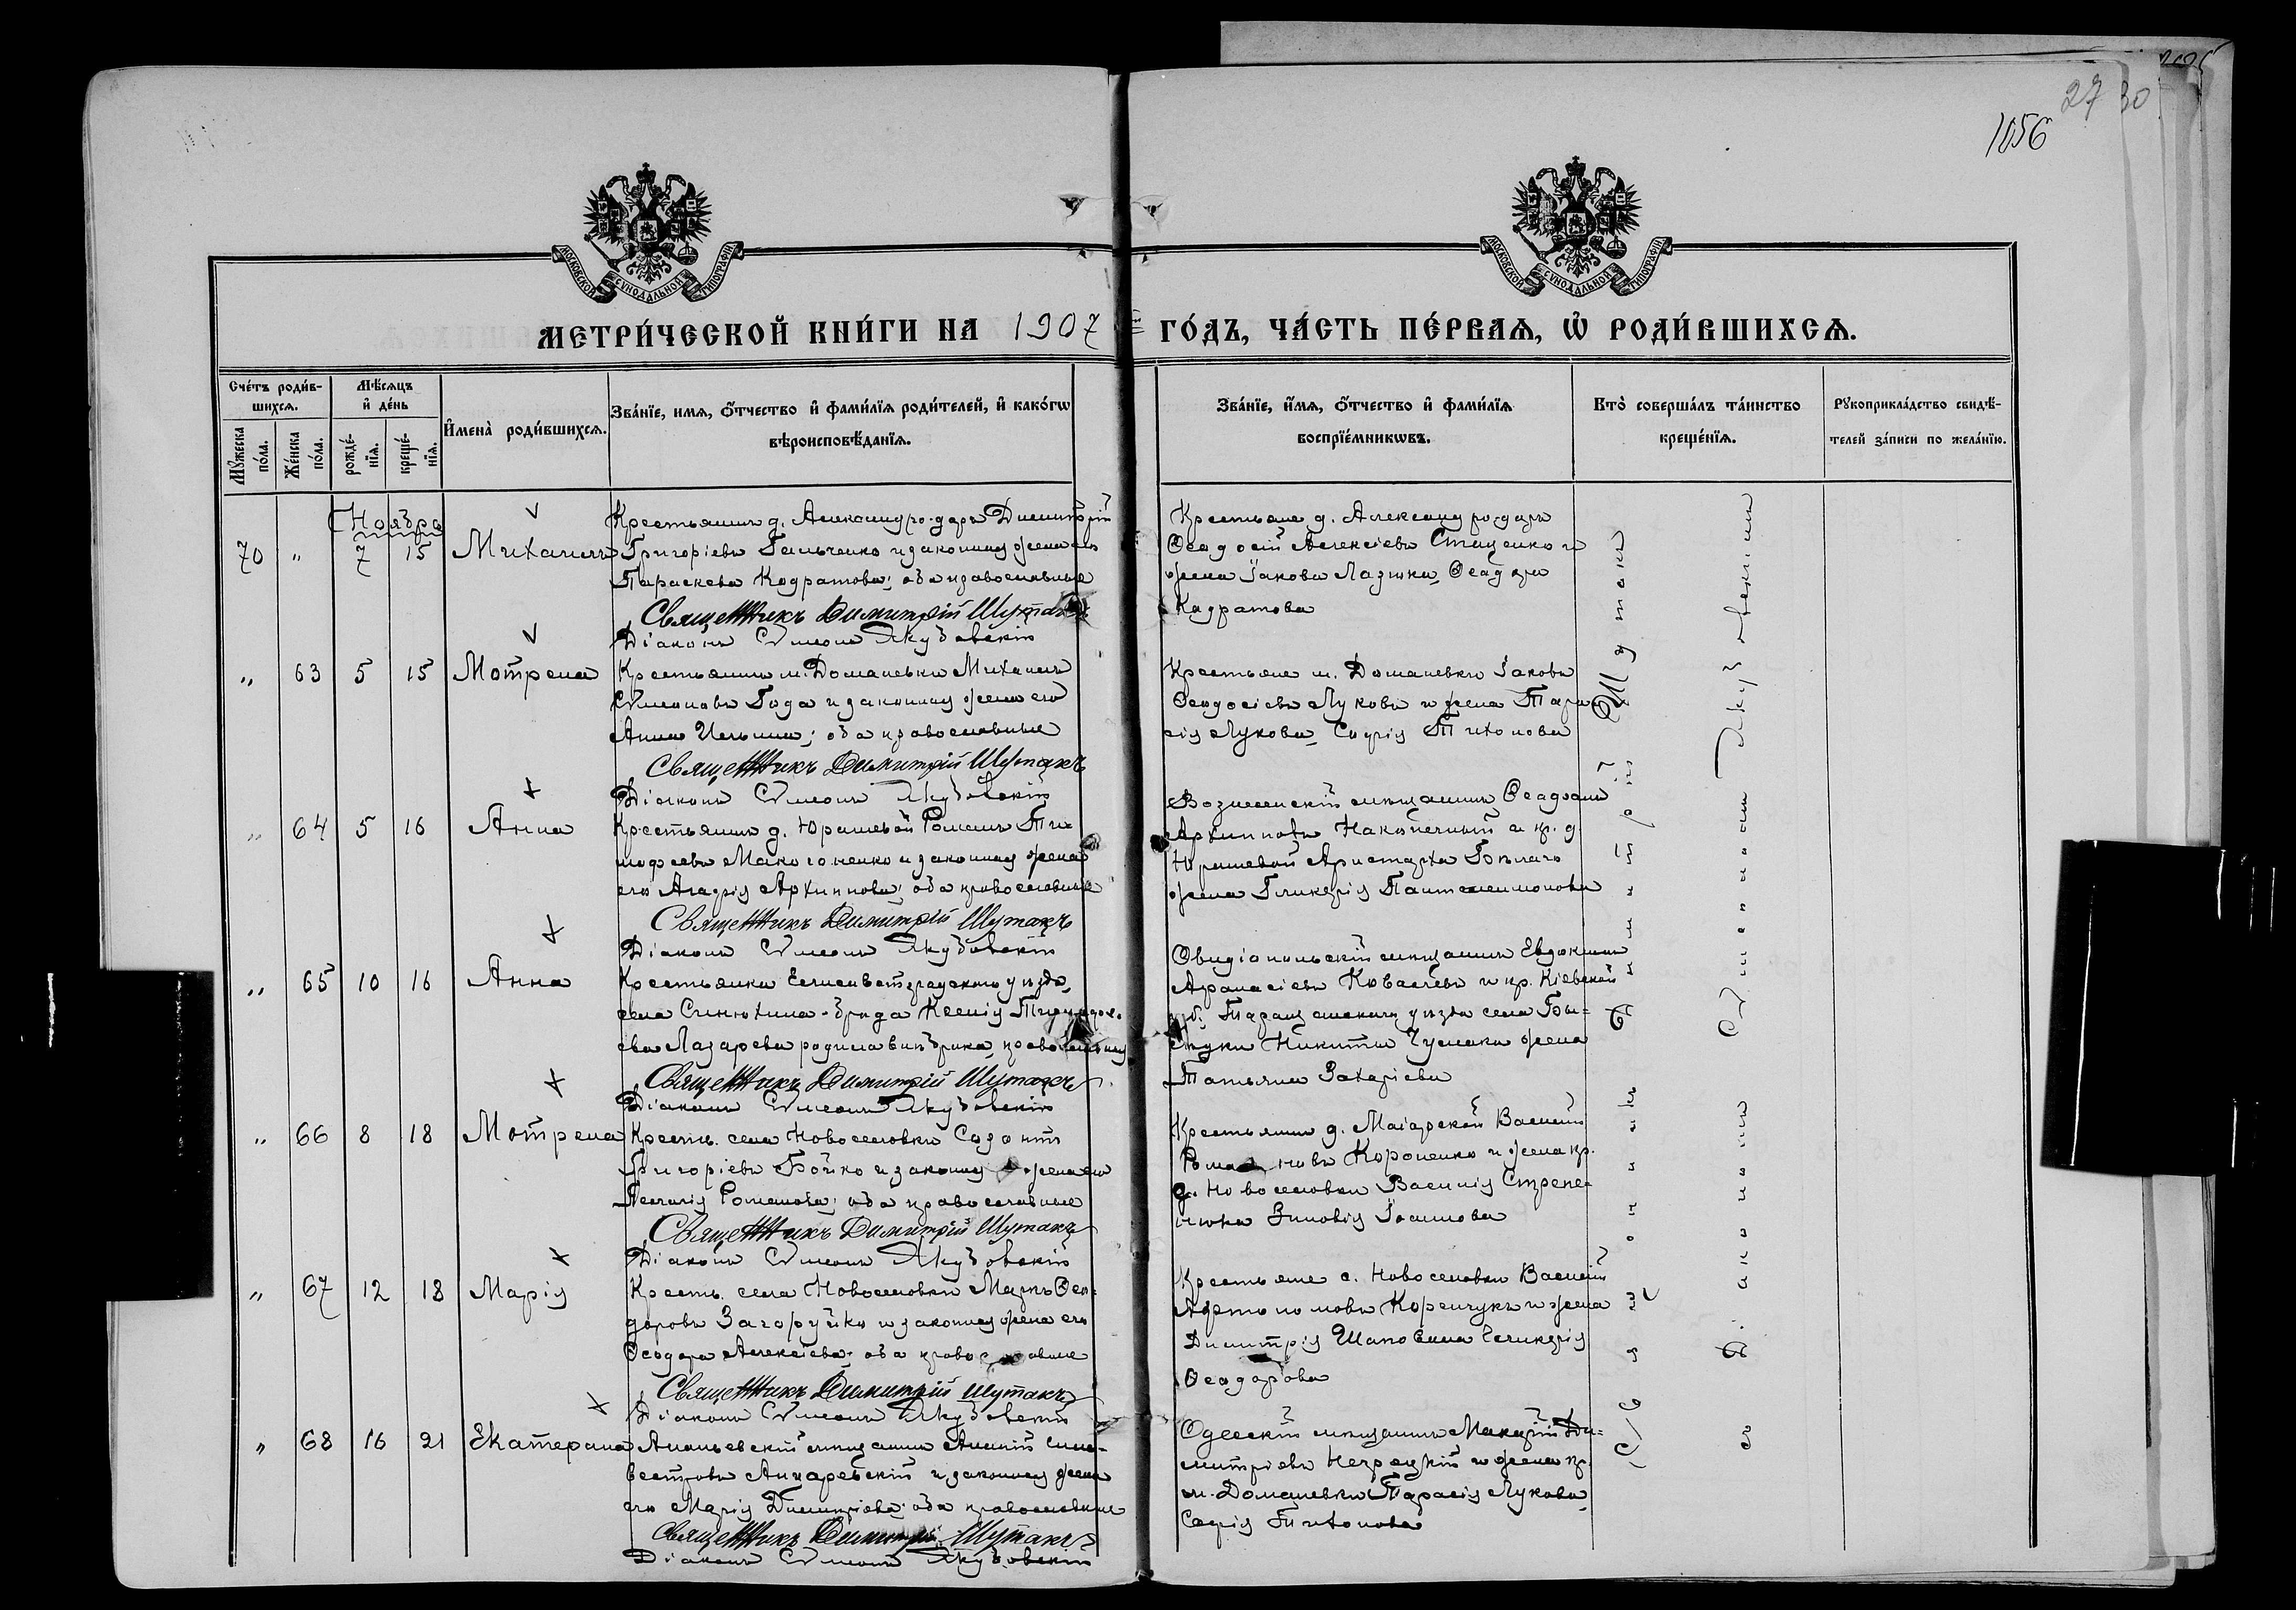 2695
27 30
1056
МОСКОВСКОЙ СУНОДАЛЬНОЙ ТИПОГРАФІИ
МОСКОВСКОЙ СУНОДАЛЬНОЙ ТИПОГРАФІИ
МЕТРИ́ЧЕСКОЙ КНИ́ГИ НА 1907 ГО́ДЪ, ЧА́СТЬ ПЕ́РВАЯ, Ѡ҆ РОДИ́ВШИХСЯ.
Сче́тъ роди́вшихся.
Мꙋ́жеска по́ла.
Же́нска по́ла.
Мѣ́сяцъ и҆ де́нь
рожде́нїя.
креще́нїя.
И҆мена̀ роди́вшихся.
Зва́нїе, имя, ѻ҆́тчество и҆ фами́лїя роди́телей, и҆ како́гѡ вѣроисповѣ́данїя.
Зва́нїе, и҆́мя, ѻ҆́тчество и҆ фами́лїя воспрїе́мникѡвъ.
Кто̀ соверша́лъ та́инство креще́нїя.
Рꙋкоприкла́дство свидѣ́телей за́писи по жела́нїю.
Ноября
70 " 7 15 Михаилъ
Крестьянинъ д. Александро-даръ Димитрій
Григоріевъ Гальченко и законная жена его
Параскева Кодратова; оба православные
Священникъ Димитрій Шутакъ
Діаконъ Симеонъ Якубовскій
Крестьяне д. Александро-даръ
Ѳеодосій Алексіевъ Стаценко и
жена Іакова Лазюка, Ѳеодора
Кадратова
" 63 5 15 Мотрена
Крестьянинъ м. Доманевки Михаилъ
Симеоновъ Года и законная жена его
Анна Ильина; оба православные
Священникъ Димитрій Шутакъ
Діаконъ Симеонъ Якубовскій
Крестьяне м. Доманевки Іаковъ
Ѳеодосіевъ Луковъ и жена Тара
сія Лукова, Софія Тихонова
" 64 5 16 Анна
Крестьянинъ д. Юрашевой Романъ Ти-
мофеевъ Макогоненко и законная жена
его Агафія Архиппова; оба православные
Священникъ Димитрій Шутакъ
Діаконъ Симеонъ Якубовскій
Вознесенскій мещанинъ
Архипповъ Наконечный и кр. д.
Юрашевой Аристарха Бѣлаго
жена Гликерія Пантелеимонова
" 65 10 16 Анна
Крестьянка Елисаветградскаго уѣзда,
села Синюхина-брода Ксенія
ева Лазарева родила внѣ брака, православная
Священникъ Димитрій Шутакъ
Діаконъ Симеонъ Якубовскій
Овидіопольскій мещанинъ Евдокимъ
Афанасіевъ Ковалевъ и кр. Кіевской
губ. Таращанскаго уѣзда села
Никиты Чумака жена
Татьяна Захаріева
" 66 8 18 Мотрена
Крестьян. села Новоселовки
Григоріевъ Бойко и законная жена его
Пелагія Романова; оба православные
Священникъ Димитрій Шутакъ
Діаконъ Симеонъ Якубовскій
Крестьянинъ д. Маіарской Василій
Романовъ Короненко и жена кр.
д. Новоселовки Василія
Зиновія Іоаннова
" 67 12 18 Марія
Крестьян. села Новоселовки Маркъ Ѳео-
доровъ Загоруйко и законная жена его
Ѳеодора Алексіева; оба православные
Священникъ Димитрій Шутакъ
Діаконъ Симеонъ Якубовскій
Крестьяне с. Новоселовки Василій
Корейчукъ и жена
Димитрія Шаповала Гликерія
Ѳеодорова
" 68 16 21 Екатерина
Ананьевскій мещанинъ Ананій Силь-
вестровъ и законная жена
его Марія Димитріева; оба православные
Священникъ Димитрій Шутакъ
Діаконъ Симеонъ Якубовскій
Одесскій мещанинъ Макарій Ди-
митріевъ и жена кр.
м. Доманевки Тарасія Лукова,
Софія Тихонова
Священникъ Димитрій Шутакъ
съ діакономъ Симеономъ Якубовскимъ